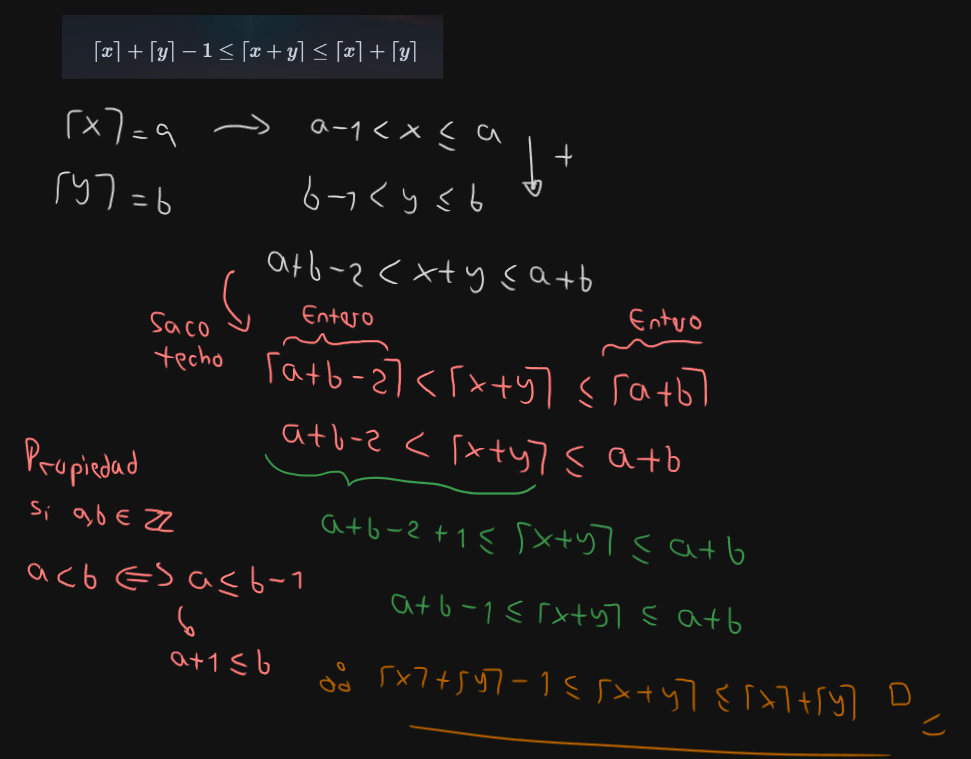 ⌈x⌉ + ⌈y⌉ − 1 ≤ ⌈x + y⌉ ≤ ⌈x⌉ + ⌈y⌉
⌈x⌉ = a → a-1 < x ≤ a
↓ +
⌈y⌉ = b b-1 < y ≤ b
a+b-2 < x+y ≤ a+b
Saco techo
Entero Entero
⌈a+b-2⌉ < ⌈x+y⌉ ≤ ⌈a+b⌉
a+b-2 < ⌈x+y⌉ ≤ a+b
Propiedad
si a,b ∈ ℤ
a<b ⟺ a ≤ b-1
a+1 ≤ b
a+b-2+1 ≤ ⌈x+y⌉ ≤ a+b
a+b-1 ≤ ⌈x+y⌉ ≤ a+b
∴ ⌈x⌉+⌈y⌉-1 ≤ ⌈x+y⌉ ≤ ⌈x⌉+⌈y⌉ □